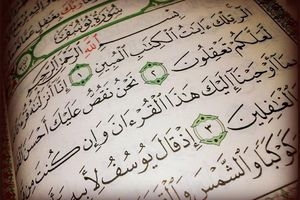 سُورَةُ يُوسُفَ
بِسْمِ ٱللَّهِ ٱلرَّحْمَٰنِ ٱلرَّحِيمِ
الٓر تِلْكَ ءَايَٰتُ ٱلْكِتَٰبِ ٱلْمُبِينِ ١ إِنَّآ أَنزَلْنَٰهُ
لَّعَلَّكُمْ تَعْقِلُونَ ٢ نَحْنُ نَقُصُّ عَلَيْكَ أَحْسَنَ
بِمَآ أَوْحَيْنَآ إِلَيْكَ هَٰذَا ٱلْقُرْءَانَ وَإِن كُنتَ مِن
ٱلْغَٰفِلِينَ ٣ إِذْ قَالَ يُوسُفُ
كَوْكَبًا وَٱلشَّمْسَ